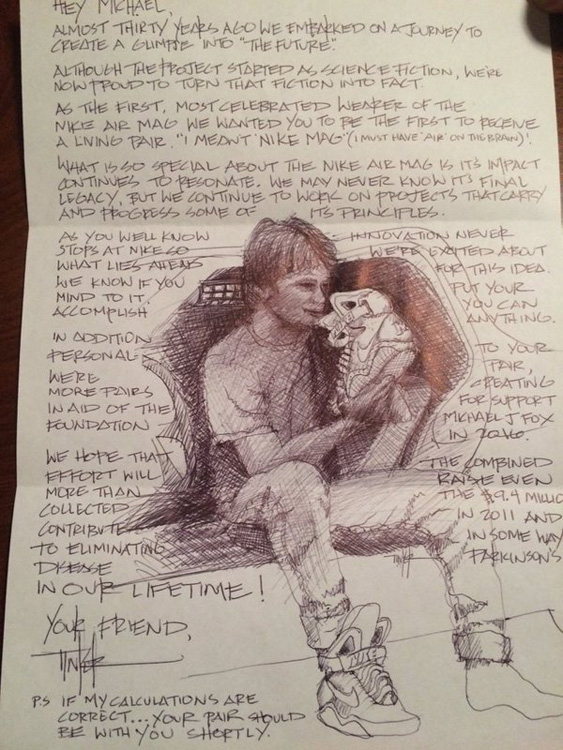 HEY MICHAEL,
ALMOST THIRTY YEARS AGO WE EMBARKED ON A JOURNEY TO
CREATE A GLIMPSE INTO "THE FUTURE".
ALTHOUGH THE PROJECT STARTED AS SCIENCE FICTION, WE'RE
NOW PROUD TO TURN THAT FICTION INTO FACT.
AS THE FIRST, MOST CELEBRATED WEARER OF THE
NIKE AIR MAG WE WANTED YOU TO BE THE FIRST TO RECEIVE
A LIVING PAIR. "I MEANT 'NIKE MAG' (I MUST HAVE 'AIR' ON THE BRAIN)!
WHAT IS SO SPECIAL ABOUT THE NIKE AIR MAG IS IT'S IMPACT
CONTINUES TO RESONATE. WE MAY NEVER KNOW IT'S FINAL
LEGACY, BUT WE CONTINUE TO WORK ON PROJECTS THAT CARRY
AND PROGRESS SOME OF ITS PRINCIPLES.
AS YOU WELL KNOW INNOVATION NEVER
STOPS AT NIKE SO WE'RE EXCITED ABOUT
WHAT LIES AHEAD FOR THIS IDEA.
WE KNOW IF YOU PUT YOUR
MIND TO IT. YOU CAN
ACCOMPLISH ANYTHING.
IN ADDITION TO YOUR
PERSONAL PAIR,
WE'RE CREATING
MORE PAIRS FOR SUPPORT
IN AID OF THE MICHAEL J FOX
FOUNDATION IN 2016.
WE HOPE THAT THE COMBINED
EFFORT WILL RAISE EVEN
MORE THAN THE $9.4 MILLIO
COLLECTED IN 2011 AND
CONTRIBUTE IN SOME WAY
TO ELIMINATING PARKINSON'S
DISEASE
IN OUR LIFETIME!
YOUR FRIEND,
TINKER
TINKER
P.S IF MY CALCULATIONS ARE
CORRECT... YOUR PAIR SHOULD
BE WITH YOU SHORTLY.